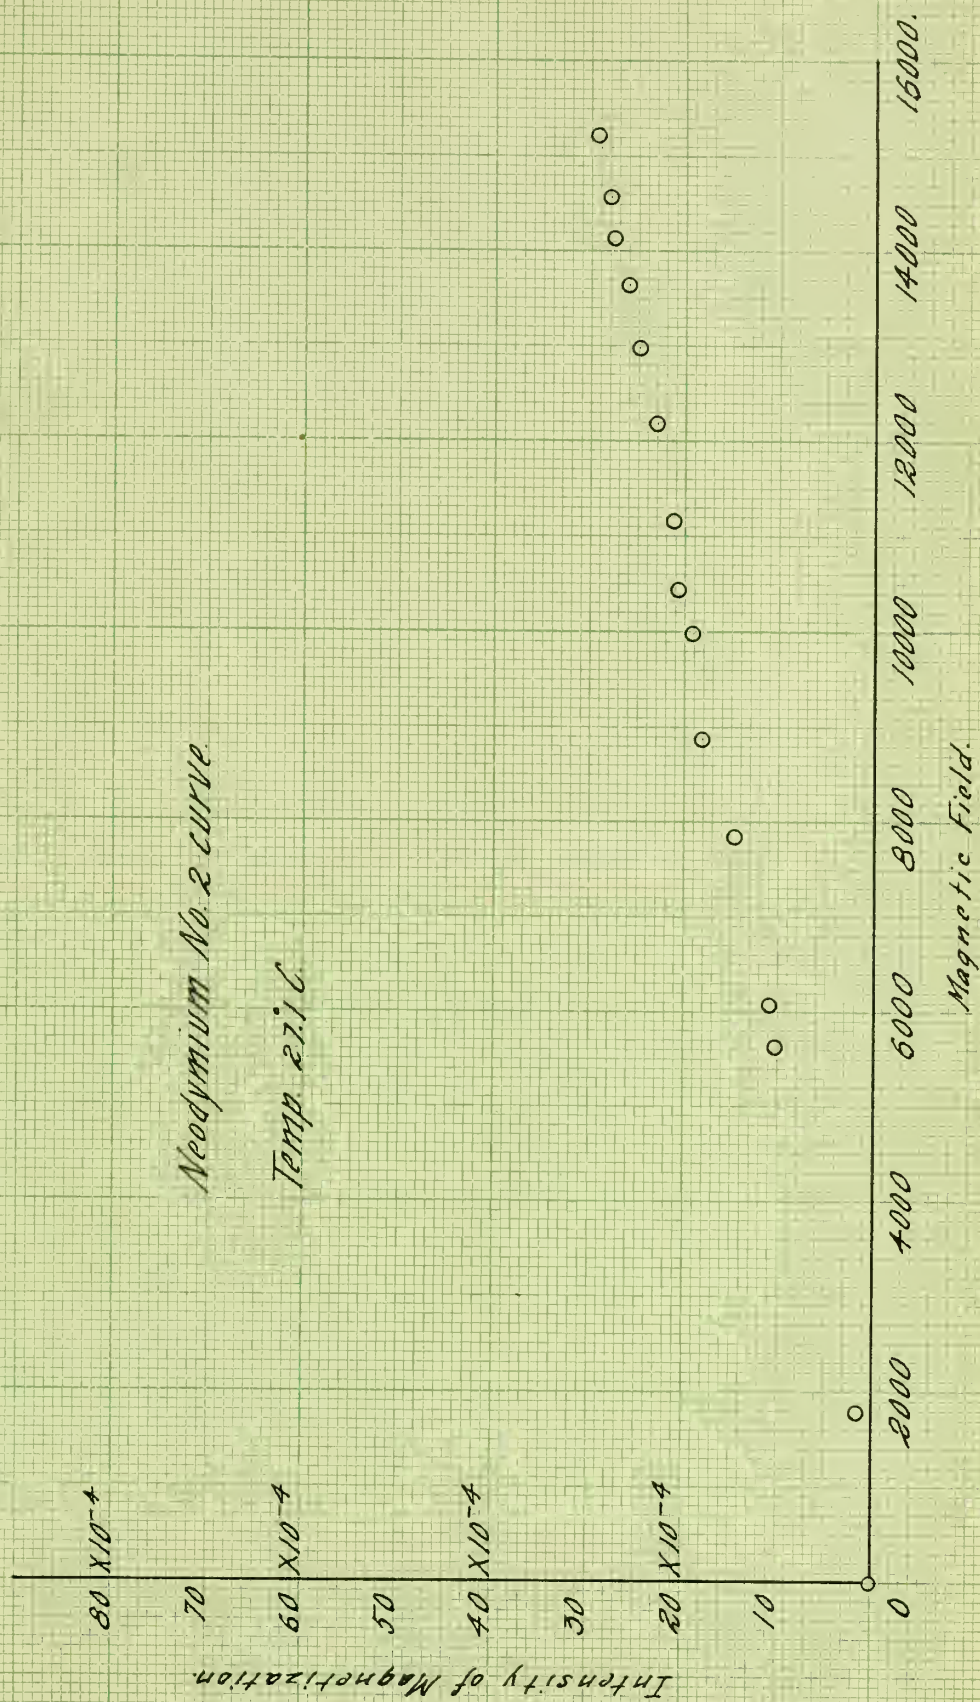 Neodymium No. 2 curve.
Temp. 27.1° C.
Intensity of Magnetization.
80 X10-4
70
60 X10-4
50
40 X10-4
30
20 X10-4
10
0
2000
4000
6000
8000
10000
12000
14000
16000.
Magnetic Field.